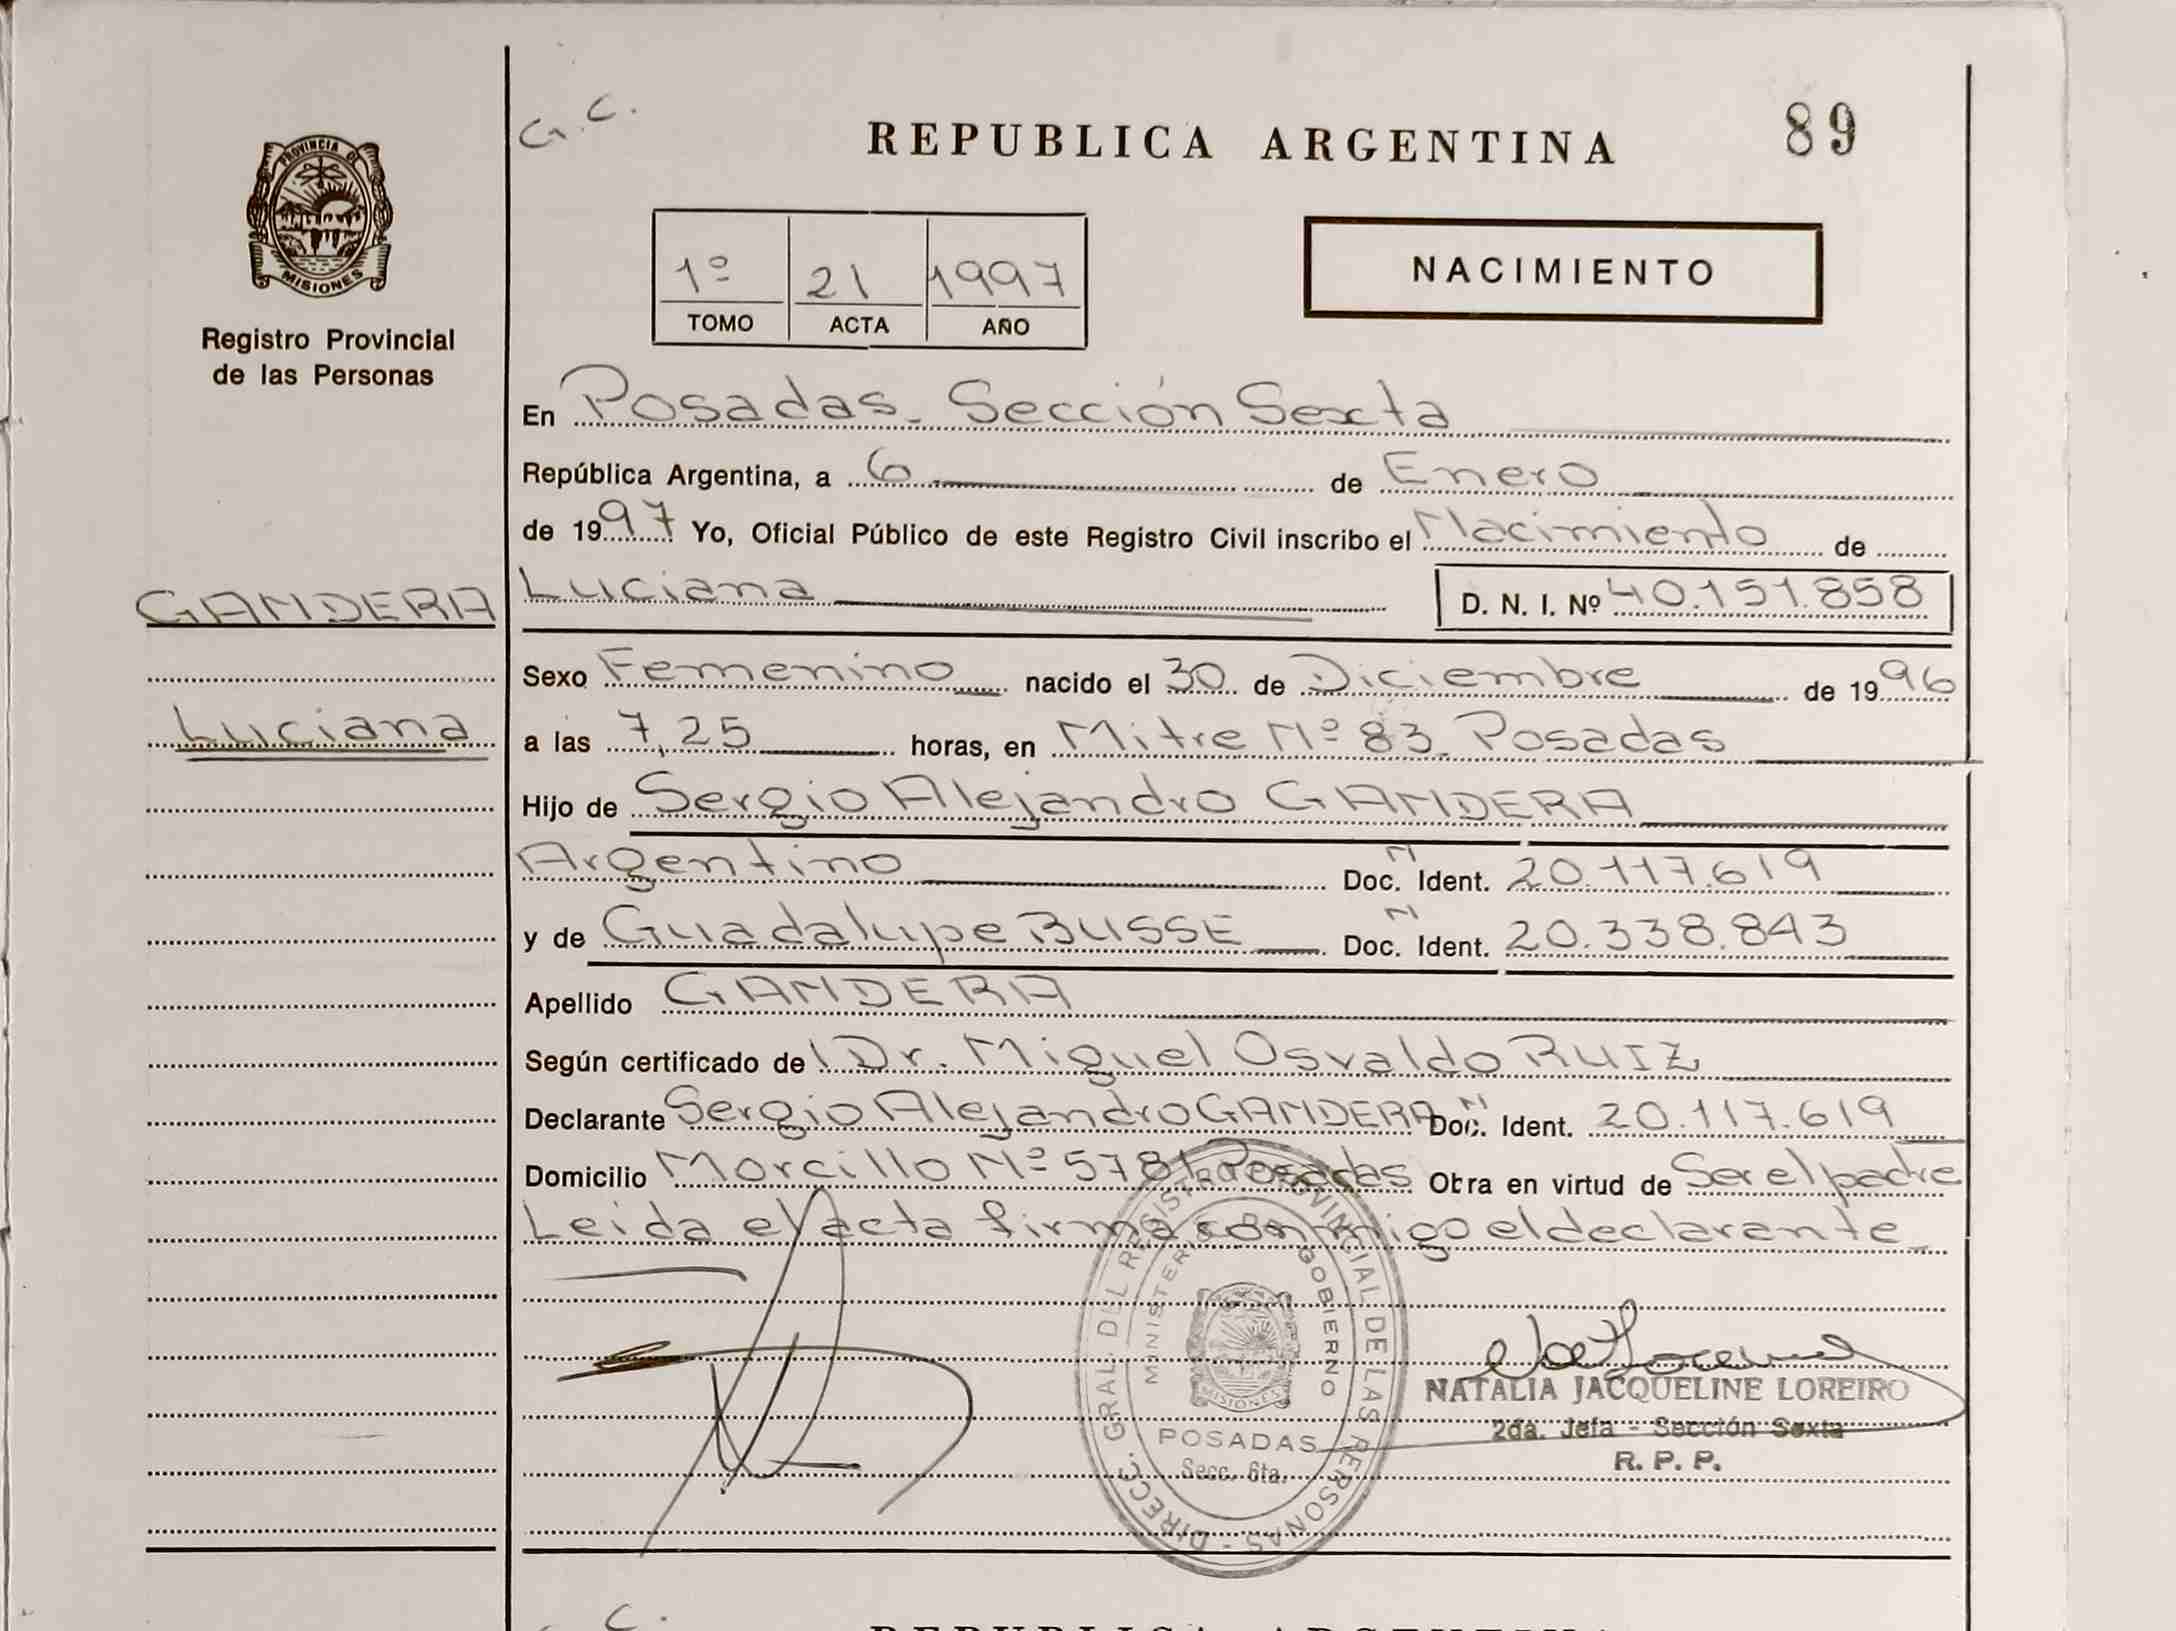 G.C.
REPUBLICA ARGENTINA
89
PROVINCIA DE
MISIONES
Registro Provincial
de las Personas
1º 21 1997
TOMO ACTA AÑO
NACIMIENTO
En Posadas - Sección Sexta
República Argentina, a 6 de Enero
de 1997 Yo, Oficial Público de este Registro Civil inscribo el Nacimiento de
GANDERA
Luciana D. N. I. Nº 40.151.858
Sexo Femenino nacido el 30 de Diciembre de 1996
Luciana
a las 7,25 horas, en Mitre Nº 83 - Posadas
Hijo de Sergio Alejandro GANDERA
Argentino Doc. N. Ident. 20.117.619
y de Guadalupe BUSSE Doc. N. Ident. 20.338.843
Apellido GANDERA
Según certificado de Dr. Miguel Osvaldo RUIZ
Declarante Sergio Alejandro GANDERA Doc. N. Ident. 20.117.619
Domicilio Morcillo Nº 5781 Posadas Obra en virtud de Ser el padre
Leida el acta firma conmigo el declarante
DIRECC. GRAL. DEL REGISTRO PROVINCIAL DE LAS PERSONAS -
MINISTERIO DE GOBIERNO
MISIONES
POSADAS
Secc. 6ta.
NATALIA JACQUELINE LOREIRO
2da. Jefa - Sección Sexta
R. P. P.
C.
REPUBLICA ARGENTINA